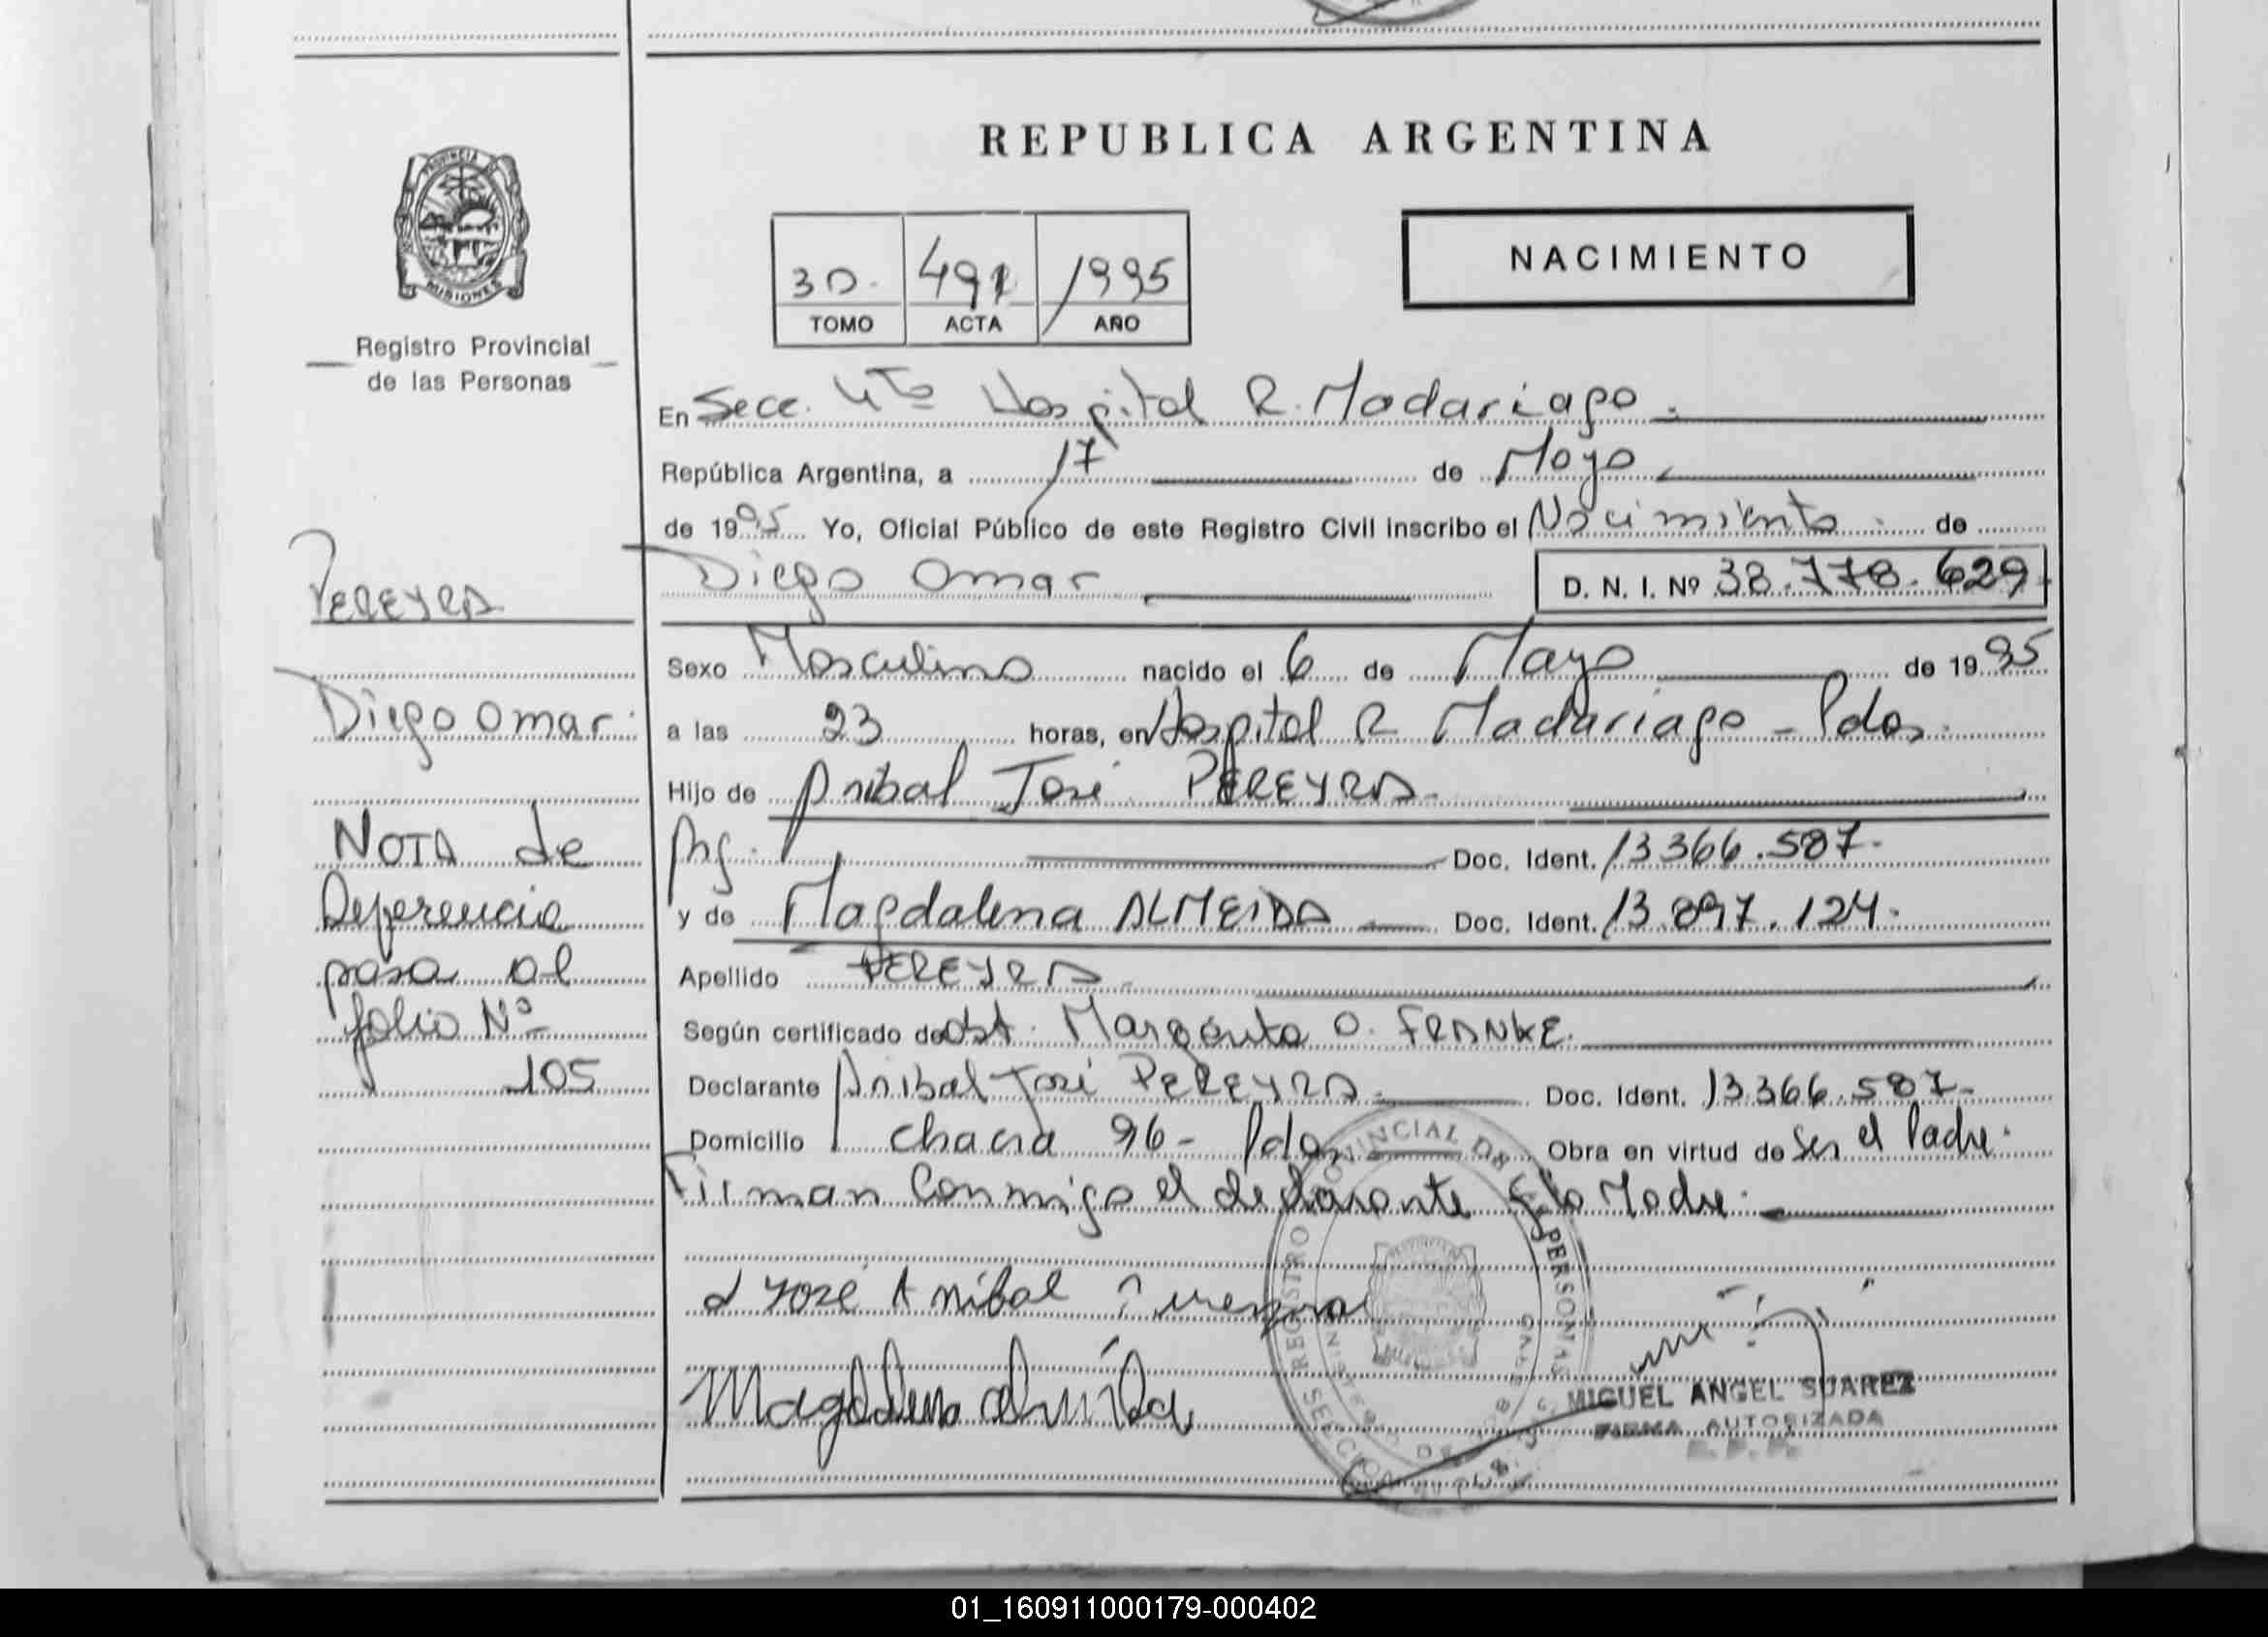 REPUBLICA ARGENTINA
PROVINCIA
MISIONES
Registro Provincial
de las Personas
30. 491 1995
TOMO ACTA AÑO
NACIMIENTO
En Secc. 4ta Hospital R. Madariaga.
República Argentina, a 17 de Mayo
de 1995 Yo, Oficial Público de este Registro Civil inscribo el Nacimiento de
Diego Omar D. N. I. Nº 38.778.629
Sexo Masculino nacido el 6 de Mayo de 1995
a las 23 horas, en Hospital R Madariaga - Pdas.
Hijo de Anibal José PEREYRA.
Arg. Doc. Ident. 13366.587.
y de Magdalena ALMEIDA Doc. Ident. 13.897.124.
Apellido PEREYRA
Según certificado de Obst. Margarita O. FRANKE.
Declarante Anibal José PEREYRA. Doc. Ident. 13.366.587.
Domicilio Chacra 96 - Pdas Obra en virtud de Ser el Padre.
Firman Conmigo el declarante y la Madre.
José Anibal Pereyra
Magdalena Almida
MIGUEL ANGEL SUAREZ
FIRMA AUTORIZADA
PEREYRA
Diego Omar.
NOTA de
Deferencia
pasa al
folio Nº
105
01_160911000179-000402